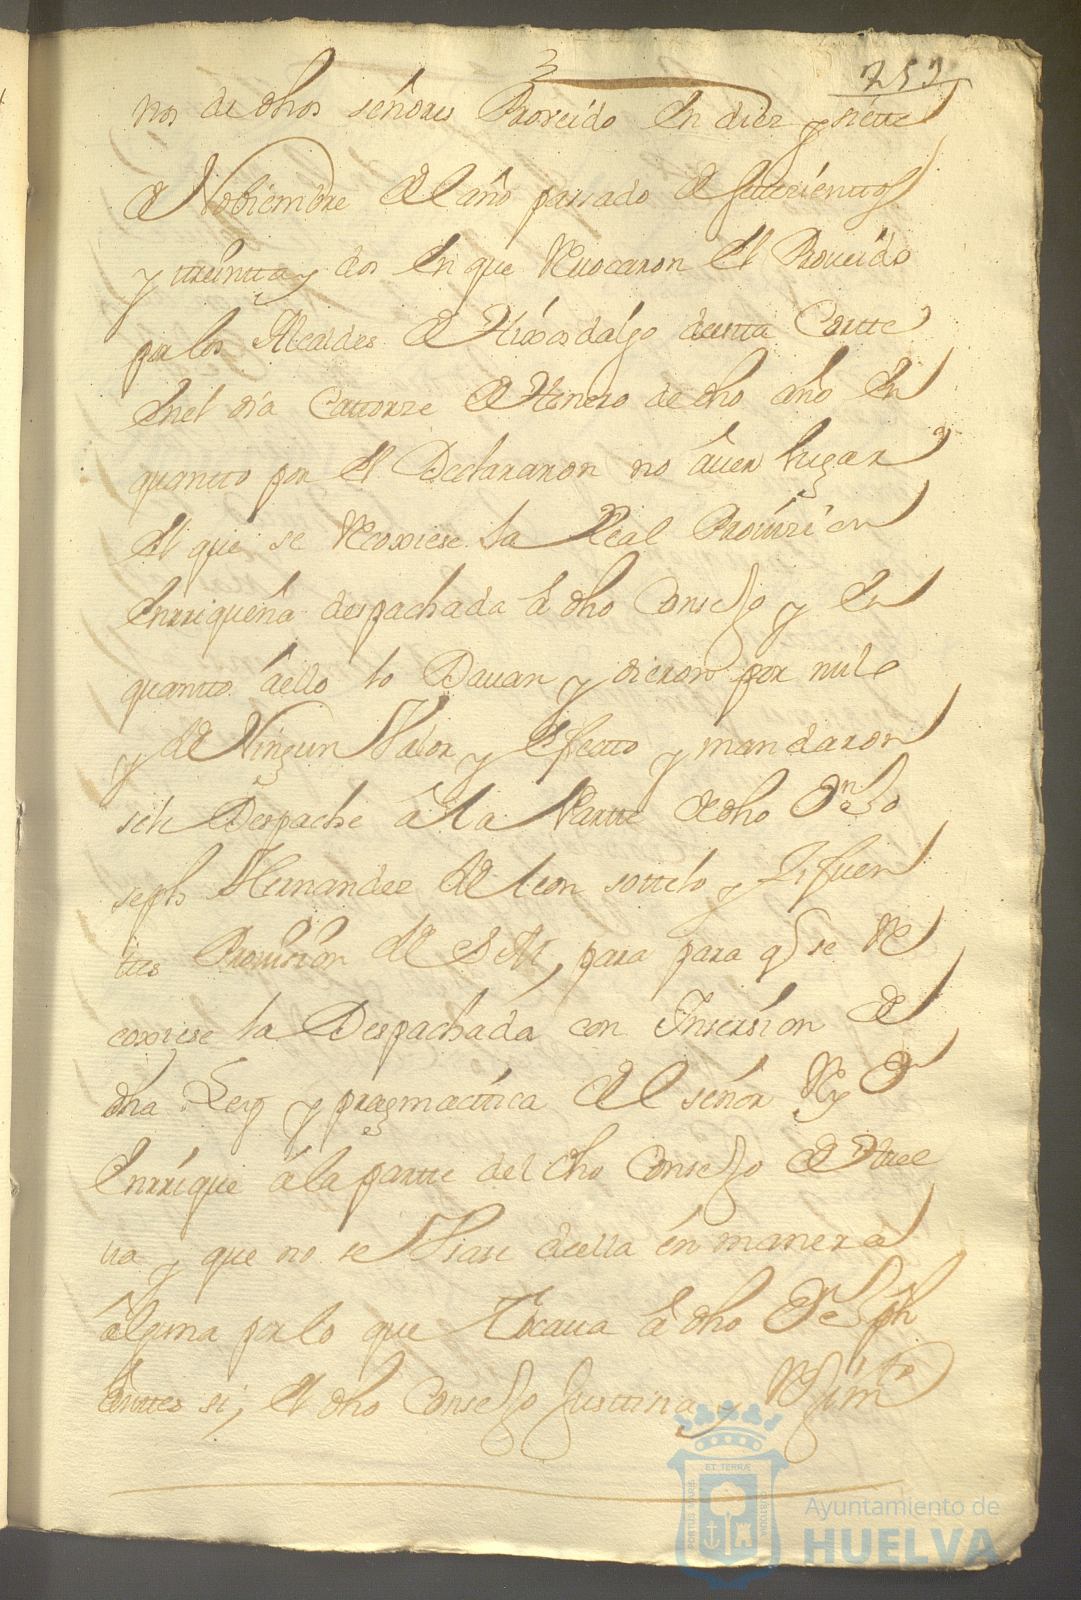 nos de dhos señores Proveido En diez y siette
de Nobiembre del año passado de settecienttos
y treintta y dos En que Revocaron El Proveido
por los Alcaldes de Hixosdalgo de esta Cortte
En el dia Cattorze de Henero de dho año En
quantto por el Declararon no aver lugar
El que se Recoxiese la Real Provizion
Enrriqueña despachada â dho Consejo y En
quantto âello lo Davan y dieron por nulo
y de Ningun Valor y Efectto y mandaron
se le Despache â la Partte de dho Dn Jo
seph Hernandez de leon sottelo y Zifuen
ttes Provision de S A, para para q se Re
coxiese la Despachada con Insersion de
dha Ley y pragmattica del señor Rey Dn
Enrrique â la partte del dho Consejo de Huel
va y que no se Usase de ella en manera
âlguna por lo que Tocava â dho Dn Jph
Anttes si, El dho Consejo Justtizia y Rejimto
Ayuntamiento de
HUELVA